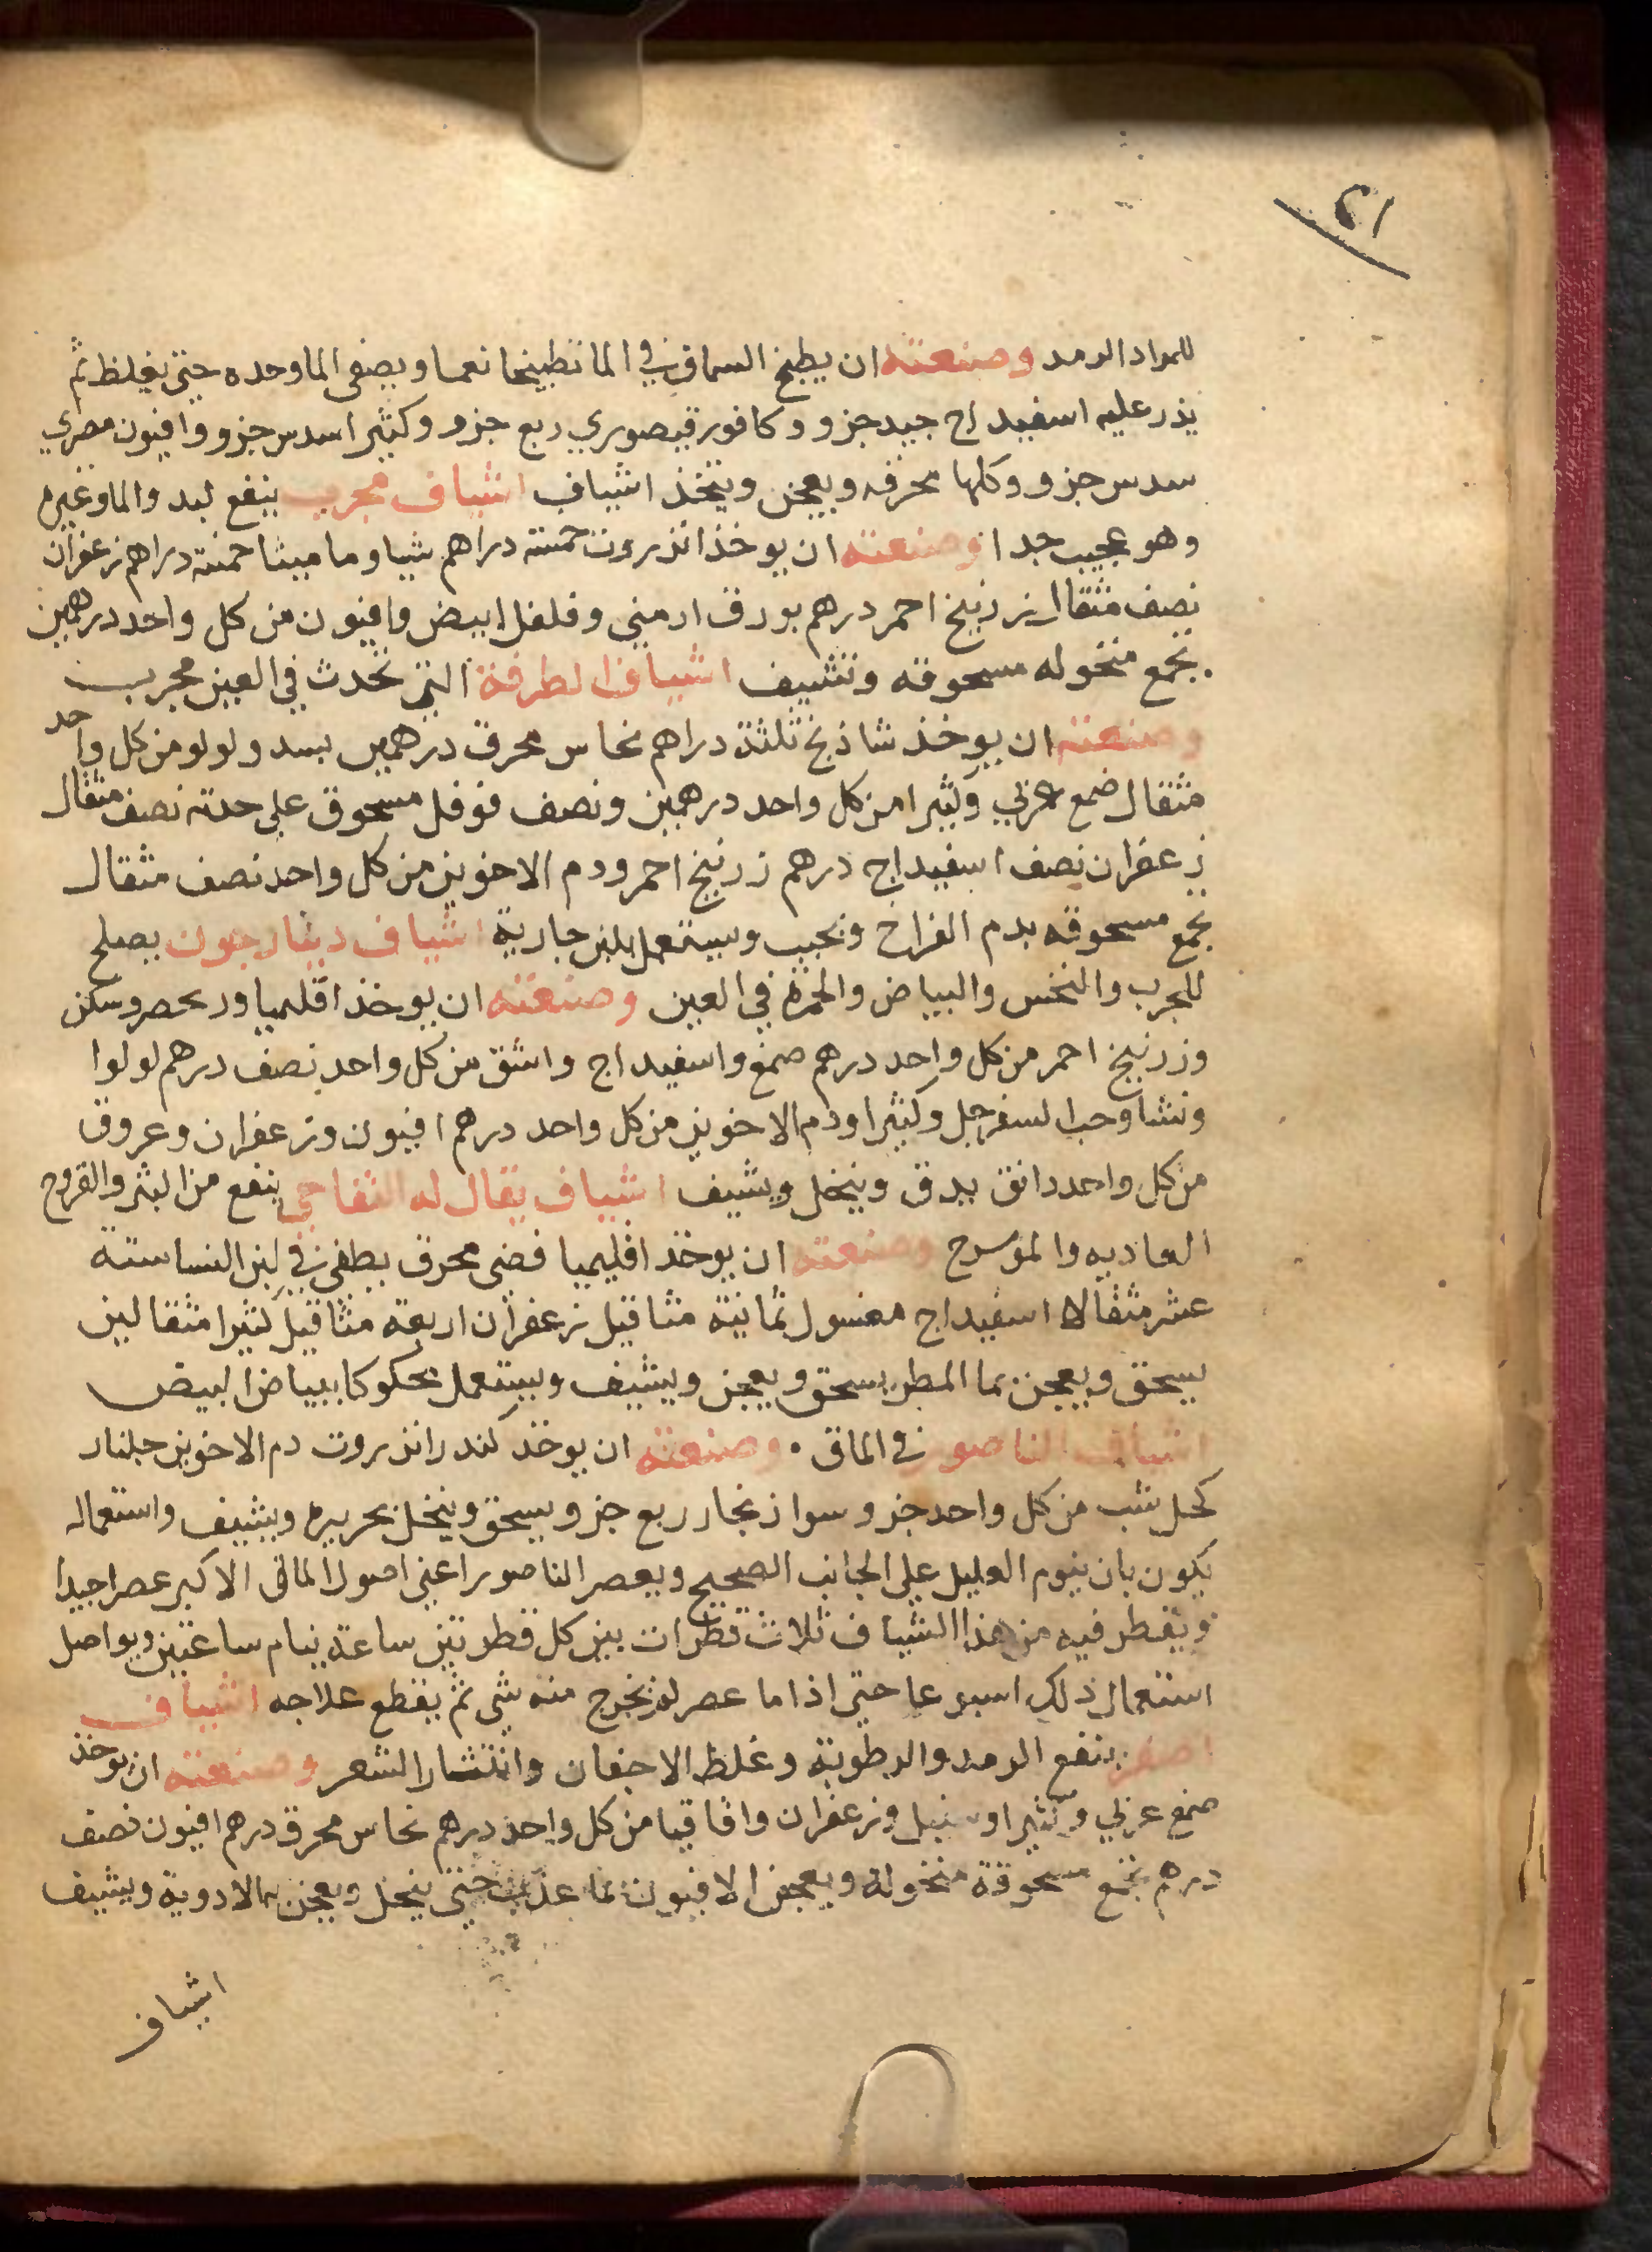 ٢١
للمواد الرمد وصنعته ان يطبخ السماق في الما تطبيخا نعما ويصفى الما وحده حتى يغلظ ثم
يذر عليه اسفيداج جيد جزو وكافور قيصوري ربع جزو وكثيرا سدس جزو وافيون مصري
سدس جزو وكلها محرقه ويعجن ويتخذ اشياف اشياف مجرب ينفع لبد والما وغيره
وهو عجيب جدا وصنعته ان يوخذ انزروت خمسة دراهم شياو ماميثا خمسة دراهم زعفران
نصف مثقال زرنيخ احمر درهم بورق ارمني وفلفل ابيض وافيون من كل واحد درهمين
تجمع منخوله مسحوقه وتشيف اشياف الطرفة التي تحدث في العين مجرب
وصنعته ان يوخذ شاذنج ثلثة دراهم نحاس محرق درهمين بسد ولولو من كل واحد
مثقال ضمع عربي وكثيرا من كل واحد درهمين ونصف فوفل مسحوق على حدته نصف مثقال
زعفران نصف اسفيداج درهم زرنيخ احمر ودم الاخوين من كل واحد نصف مثقال
تجمع مسحوقه بدم الفراخ وتحبب ويستعمل بلبن جارية اشياف دينارجون يصلح
للجرب والنخس والبياض والحمرة في العين وصنعته ان يوخذ اقليميا ور محصر وسكن
وزرنيخ احمر من كل واحد درهم صمغ واسفيداج واشق من كل واحد نصف درهم لولوا
ونشا وحب السفرجل وكثيرا ودم الاخوين من كل واحد درهم افيون وزعفران وعروق
من كل واحد دانق يدق وينخل ويشيف اشياف يقال له التفاحي ينفع من البثر والقروح
العاديه والموسرج وصنعته ان يوخذ اقليميا فضى محرق يطفى في لبن النساستة
عشر مثقالا اسفيداج مغسول ثمانية مثاقيل زعفران اربعة مثاقيل كثيرا مثقالين
يسحق ويعجن بما المطر يسحق ويعجن ويشيف ويستعمل محكوكا ببياض البيض
اشياف الناصور في الماق وصنعته ان يوخذ كندر انزروت دم الاخوين جلنار
كحل شب من كل واحد جزو سوا زنجار ربع جزو يسحق وينخل بحريره ويشيف واستعماله
يكون بان ينوم العليل على الجانب الصحيح ويعصر الناصور اعني اصول الماق الاكبر عصرا جيدا
ويقطر فيه من هذا الشياف ثلاث قطرات بين كل قطرتين ساعة ينام ساعتين ويواصل
استعمال ذلك اسبوعا حتى اذا ما عصر لم يخرج منه شي ثم يقطع علاجه اشياف
اصفر ينفع الرمد والرطوبة وغلظ الاجفان وانتشار الشعر وصنعته ان يوخذ
صمغ عربي وكثيرا وسنبل وزعفران واقاقيا من كل واحد درهم نحاس محرق درهم افيون نصف
درهم تجمع مسحوقة منخولة ويعجن الافيون بما عذب حتى ينحل ويعجن بها الادوية ويشيف
اشياف